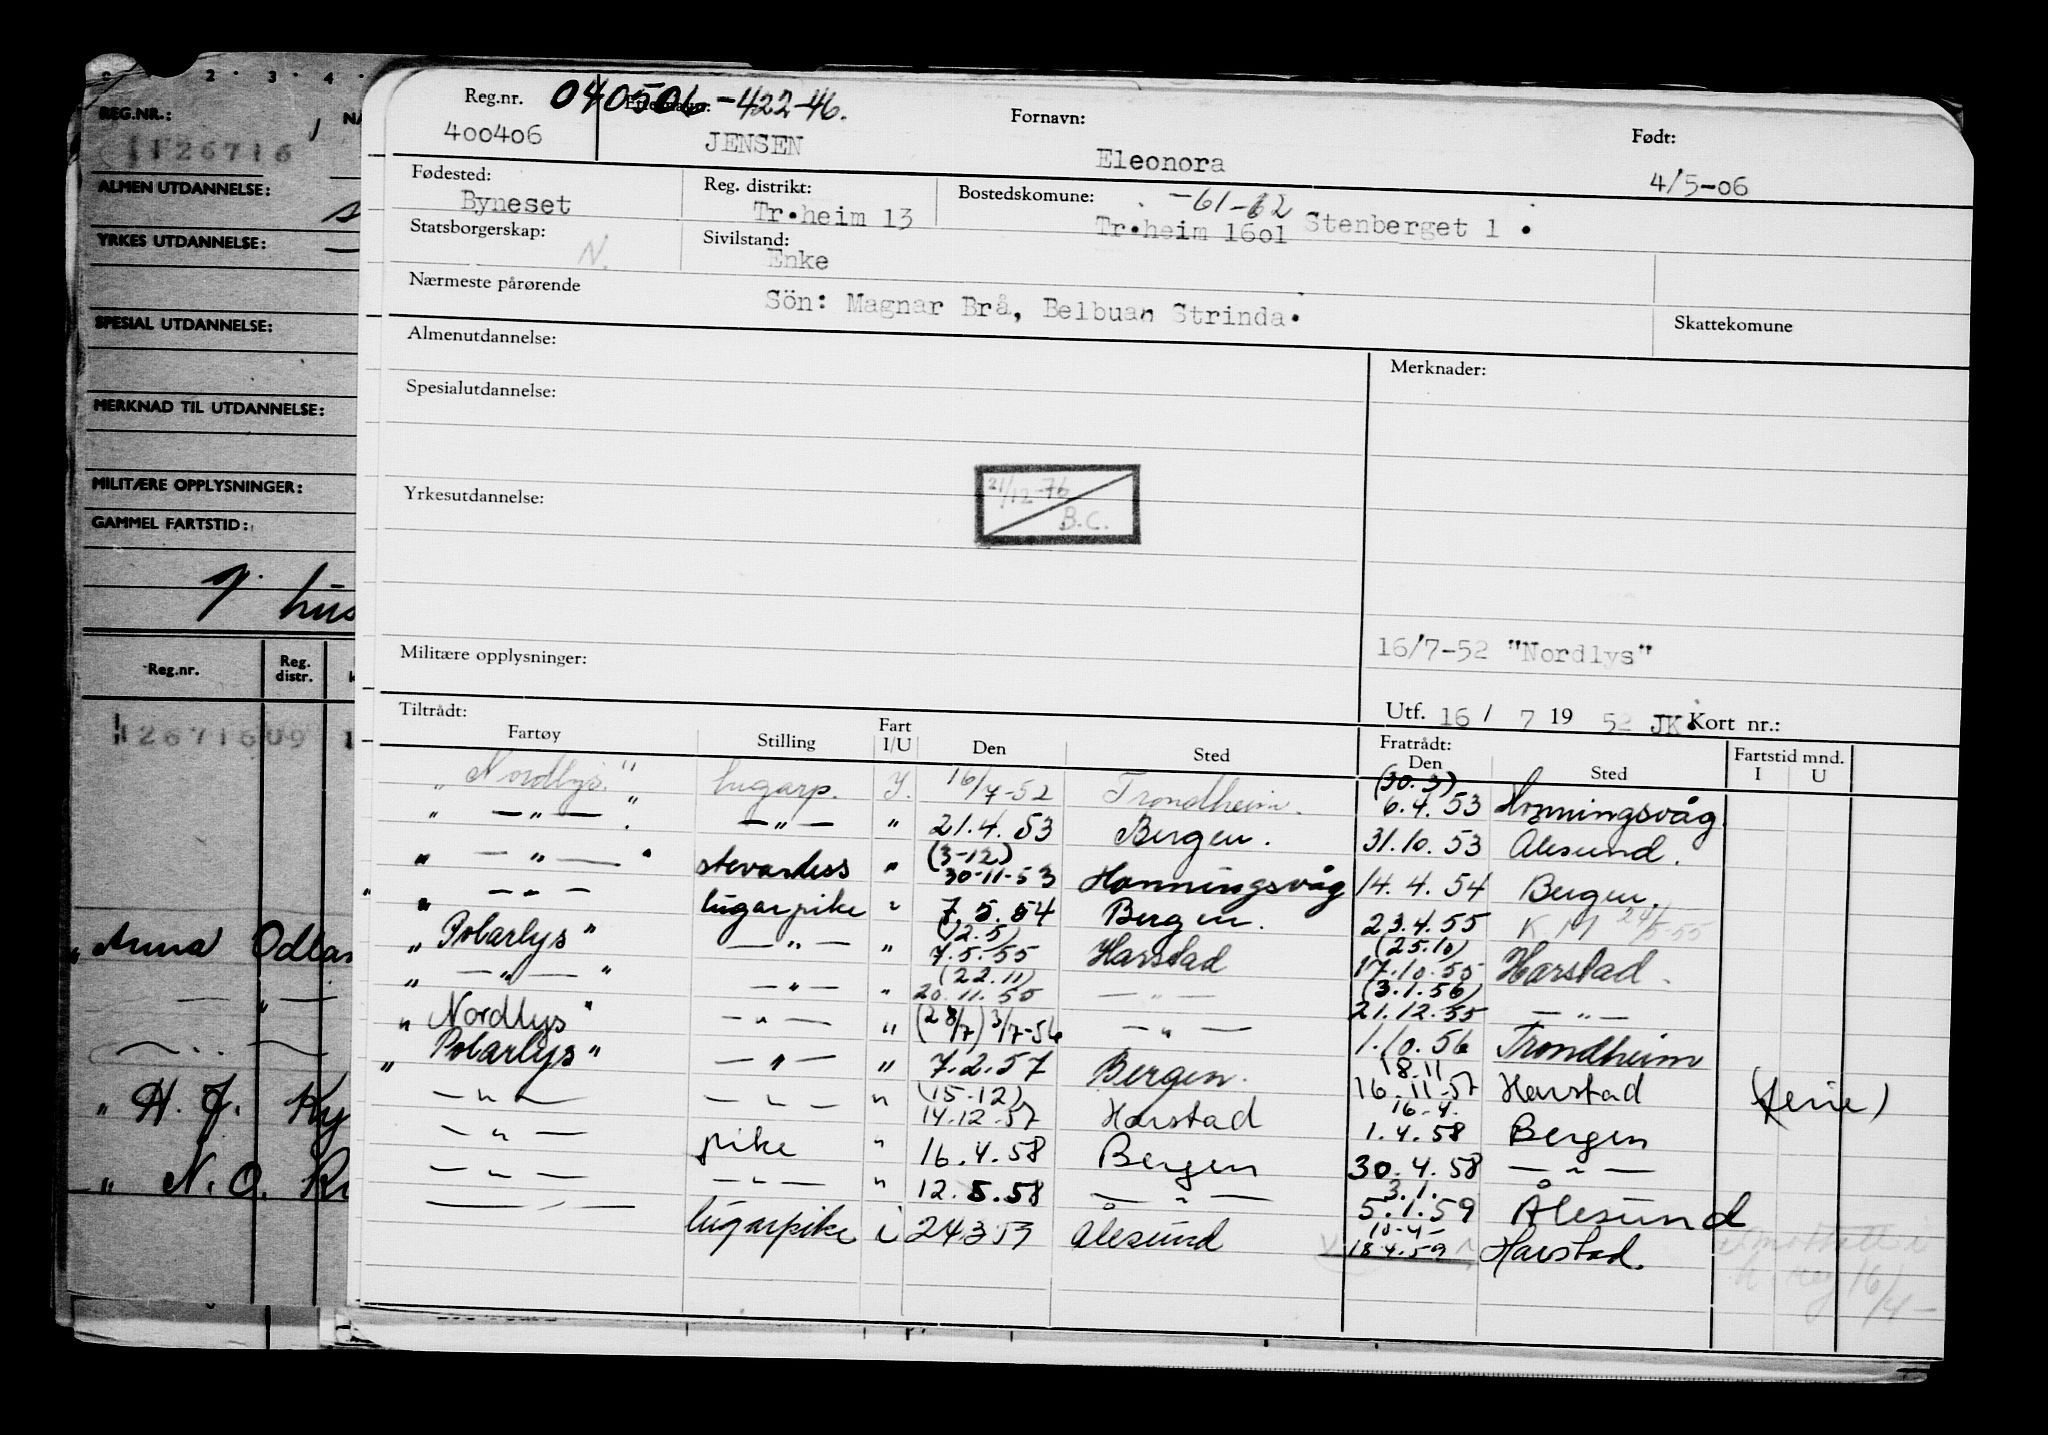 2 · 3 · 4 ·
REG.NR.:
126716
ALMEN UTDANNELSE:
YRKES UTDANNELSE:
SPESIAL UTDANNELSE:
MERKNAD TIL UTDANNELSE:
MILITÆRE OPPLYSNINGER:
GAMMEL FARTSTID:
Reg.nr. Reg. distr.
12671609 1
" Anna Odlan
" H. J. Ky
" N. O. Kr
Reg.nr. 040506-422-46. Fornavn: Født:
400406 JENSEN Eleonora 4/5-06
Fødested: Reg. distrikt: Bostedskomune: -61-62
Byneset Tr.heim 13 Tr.heim 1601 Stenberget 1 .
Statsborgerskap: N. Sivilstand: Enke
Nærmeste pårørende Sön: Magnar Brå, Belbuan Strinda.
Skattekomune
Almenutdannelse: Merknader:
Spesialutdannelse:
Yrkesutdannelse: 21/12-76 B.C.
Militære opplysninger: 16/7-52 "Nordlys"
Utf. 16 / 7 19 52 JK. Kort nr.:
Tiltrådt: Fratrådt: Fartstid mnd.
Fartøy Stilling Fart I/U Den Sted Den Sted I U
"Nordlys" lugarp. I. 16/7-52 Trondheim. (30.3) 6.4.53 Honningsvåg
" — " — " — " — " 21.4.53 Bergen. 31.10.53 Ålesund.
" — " — " stevardess " (3-12) 30-11-53 Honningsvåg 14.4.54 Bergen.
" — " — lugarpike " 7.5.54 Bergen. 23.4.55 K.M 24/5-55
" Polarlys" — " — " (12.5) 7.5.55 Harstad (25.10) 17.10.55 Harstad
" — " — " — " — " (22.11) 20.11.55 — " — (3.1.56) 21.12.55 — " —
" Nordlys" — " — " (28/7) 3/7-56 — " — 1.10.56 Trondheim
" Polarlys" — " — " 7.2.57 Bergen. 18.11 16.11.57 Harstad (ferie)
— " — — " — " (15-12) 14.12.57 Harstad 16-4. 1.4.58 Bergen
— " — pike " 16.4.58 Bergen 30.4.58 — " —
— " — — " — " 12.5.58 — " — 3.1. 5.1.59 Ålesund
— " — lugarpike i 24359 Ålesund 10-4- 18.4.59 Harstad.